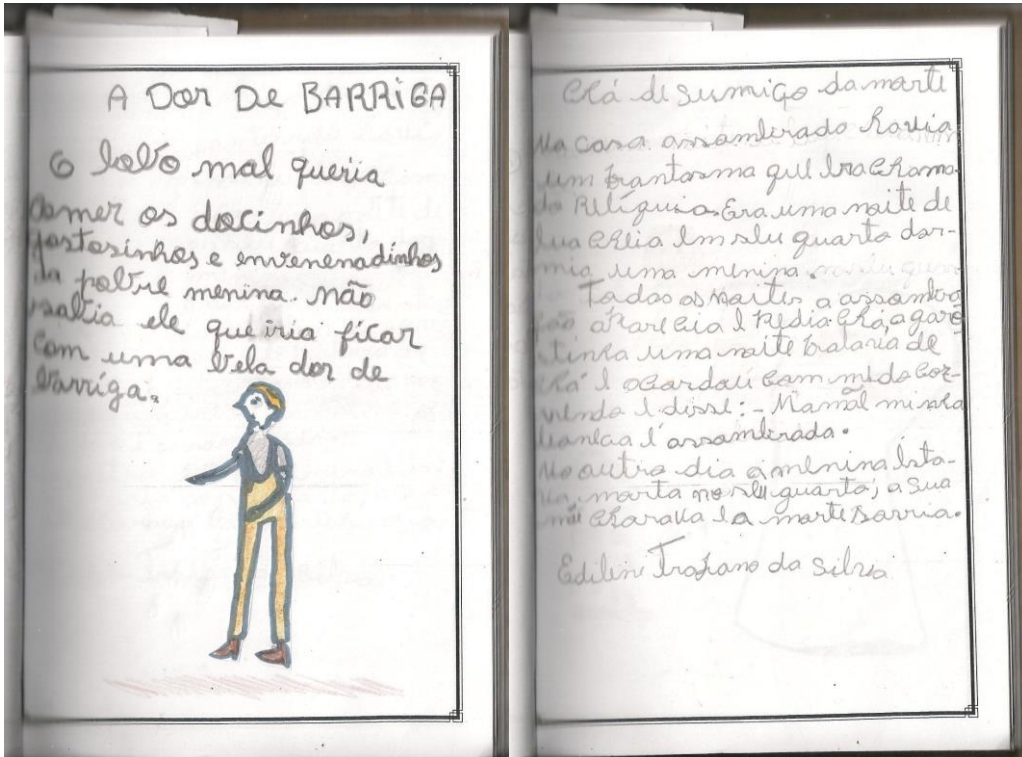 A DOR DE BARRIGA
O lobo mal queria
comer os docinhos,
gostosinhos e envenenadinhos
da pobre menina. Não
sabia ele que iria ficar
com uma bela dor de
barriga.
Chá de sumiço da morte
Na casa assombrado havia
um fantasma que era chama-
do Relíquia. Era uma noite de
lua cheia em seu quarto dor-
mia uma menina
Todas as noites a assombra
ção aparecia e pedia chá, a garo
tinha uma noite
chá e com medo cor-
rendo e disse: - Mamãe minha
é assombrada.
No outro dia a menina esta-
va morta no seu quarto, a sua
mãe chorava e a morte sorria.
da Silva